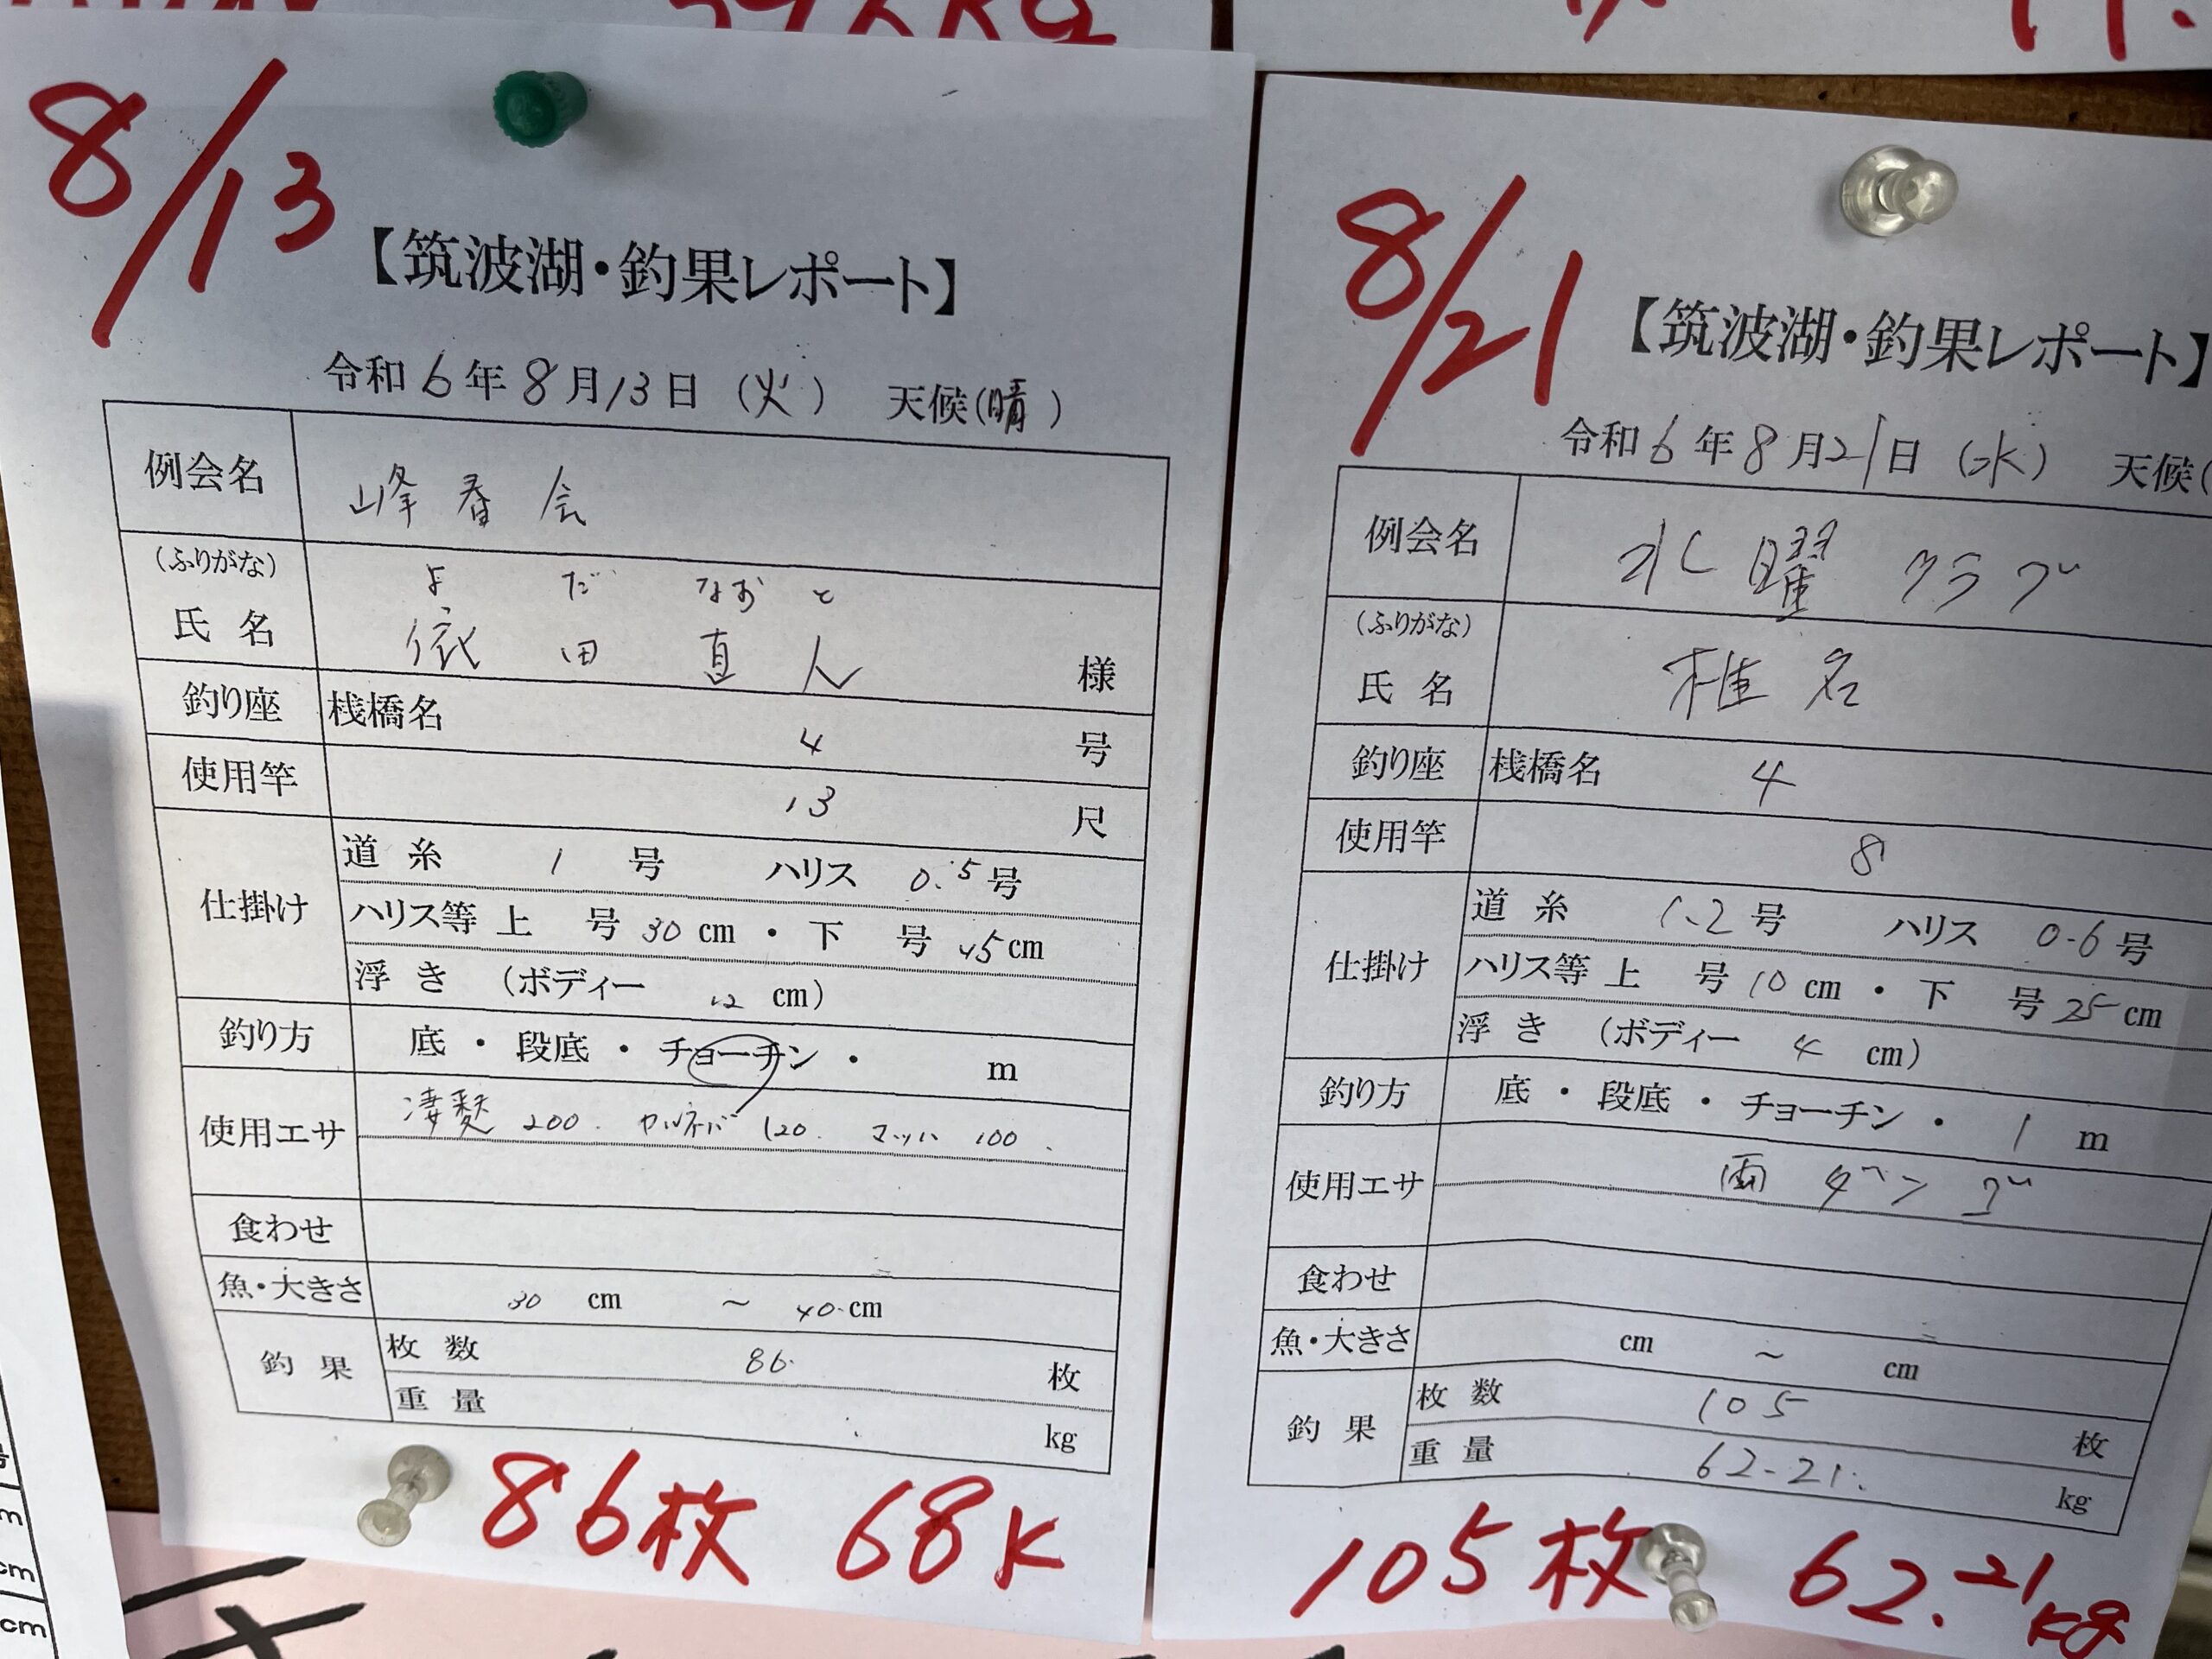 8/13
【筑波湖・釣果レポート】
令和6年8月13日（火） 天候（晴）
例会名 峰春会
（ふりがな） よだ なおと
氏名 依田 直人 様
釣り座 桟橋名 4 号
使用竿 13 尺
仕掛け 道糸 1 号 ハリス 0.5号
ハリス等 上 号 30 cm ・ 下 号 45cm
浮き （ボディー 12 cm）
釣り方 底 ・ 段底 ・ チョーチン ・ m
使用エサ 凄麩 200. カルネバ 120. マッハ 100.
食わせ
魚・大きさ 30 cm ～ 40 cm
釣果 枚数 86 枚
重量 kg
86枚 68K
8/21
【筑波湖・釣果レポート】
令和6年8月21日（水） 天候（
例会名 水曜クラブ
（ふりがな）
氏名 椎名
釣り座 桟橋名 4
使用竿 8
仕掛け 道糸 1.2号 ハリス 0.6号
ハリス等 上 号 10 cm ・ 下 号 25cm
浮き （ボディー 4 cm）
釣り方 底 ・ 段底 ・ チョーチン ・ 1 m
使用エサ 両ダンゴ
食わせ
魚・大きさ cm ～ cm
釣果 枚数 105 枚
重量 62.21 kg
105枚 62.21kg
m
cm
cm